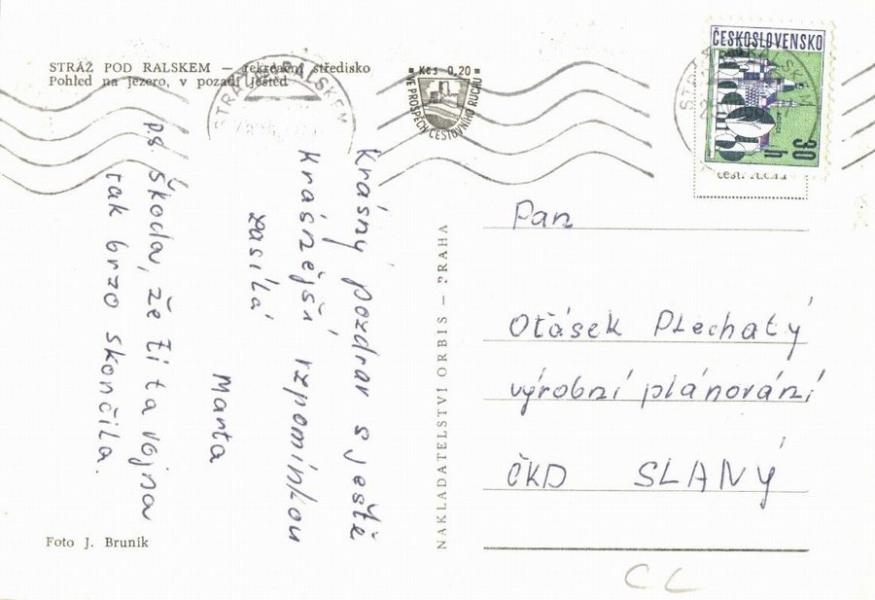 STRÁŽ POD RALSKEM — rekreační středisko
Pohled na jezero, v pozadí Ještěd
Kčs 0,20
VE PROSPĚCH CESTOVNÍHO RUCHU
ČESKOSLOVENSKO
30 h
Krásný pozdrav s ještě
krásnější vzpomínkou
zasílá
Marta
P.S. Škoda, že ti ta vojna
tak brzo skončila.
NAKLADATELSTVÍ ORBIS — PRAHA
Pan
Oťásek Plechatý
výrobní plánování
ČKD SLANÝ
Foto J. Bruník
CL